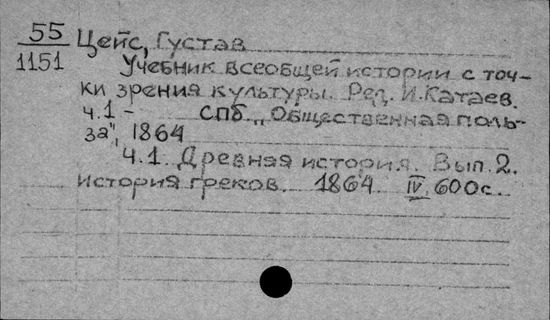 55
1151
Цейс, Густав
Учебник всеобщей истории с точ-
ки зрения культуры. Ред. И. Катаев.
ч.1 - СПб „Общественная поль-
за", 1864
ч.1. Древная история. Вып. 2.
история греков. 1864. IV, 600с.